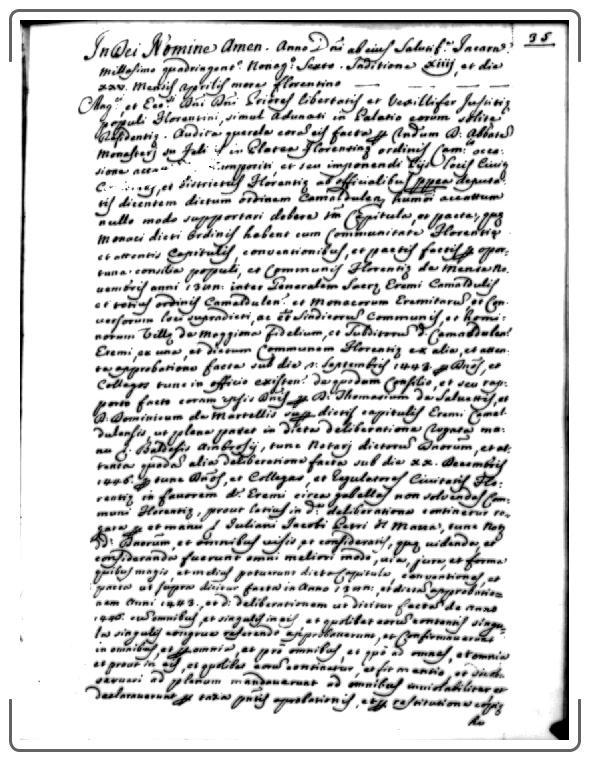 35
In Dei Nomine Amen. Anno Dni ab eius Salutif. Incarn.
Millesimo quadringent. Nonag. Sexto. Inditione xiiii, et die
xxv. Mensis Aprilis more florentino
Mag. et Ecc. Dni Dni Priores libertatis et Vexillifer Justitiæ
populi Florentini, simul Adunati in Palatio eorum solite
Residentiæ. Audita querela cora eis facta p D. Abbate
Monasterij in Platea Florentiæ ordinis Cam. occa
sione imponiti et seu imponendi
et districtus Florentiæ ab officialibus deputa
tis dicentem dictum ordinem Camaldulen. accattum
nullo modo supportari debere Capitula, et pacta, quæ
Monaci dicti Ordinis habent cum Communitate Florentiæ
et attentis Capitulis, conventionibus, et pactis factis p opor
tuna consilia populi, et Communis Florentiæ de Mense No
vembris anni inter Generalem Sacræ Eremi Camaldulis
et totius ordinis Camaldulen. et Monacorum Eremitarum et Con
versorum loci supradicti, ac Sindicorum Communis, et homi
norum Villæ de Moggiona fidelium, et Subditorum d. Camaldulen.
Eremi, ex una, et dictum Communem Florentiæ ex alia, et atten
ta approbatione facta sub die Septembris 1443. p Dnos, et
Collegos tunc in officio existen. de quodam Consilio, et seu rap
porto facto coram ipsis Dnis p D. Thomasium de Salvettis, et
D. Dominicum de Martellis dictis capitulis Eremi Camal
dulensis, ut plene patet in dicta deliberatione Rogata ma
nu Baldesis Ambrosij, tunc Notarij dictorum Dnorum, et at
tenta quada alia deliberatione facta sub die xx. Decembris
1446. p tunc Dnos, et Collegas, et Regulatores Civitatis Flo
rentiæ in favorem d. Eremi circa gabellas non solvendas Com
muni Florentiæ, prout latius in d. deliberatione continetur ro
gata p et manu S. Juliani Jacobi Petri tunc Not.
d. Dnorum, et omnibus visis et consideratis, quæ videnda et
consideranda fuerunt omni meliori modo, via, jure, et forma
quibus magis, et melius potuerunt dicta Capitula, conventiones, et
pacta ut supra dicitur facta in Anno et dictam approbatio
nem Anni 1443. et d. deliberationem ut dicitur facta de anno
1446. cum omnibus, et singulis in eis, et quolibet eorum contentis singu
la singulis congrue referendo approbaverunt, et Confirmaverunt
in omnibus, et p omnia, et pro omnibus, et ad omnes, et omnia
et prout in eis, et quolibet eorum continetur, et fit mentio, et
servari ad plenum mandaverunt ad omnibus inviolabiliter et
declaraverunt p approbationis, et p restitutione